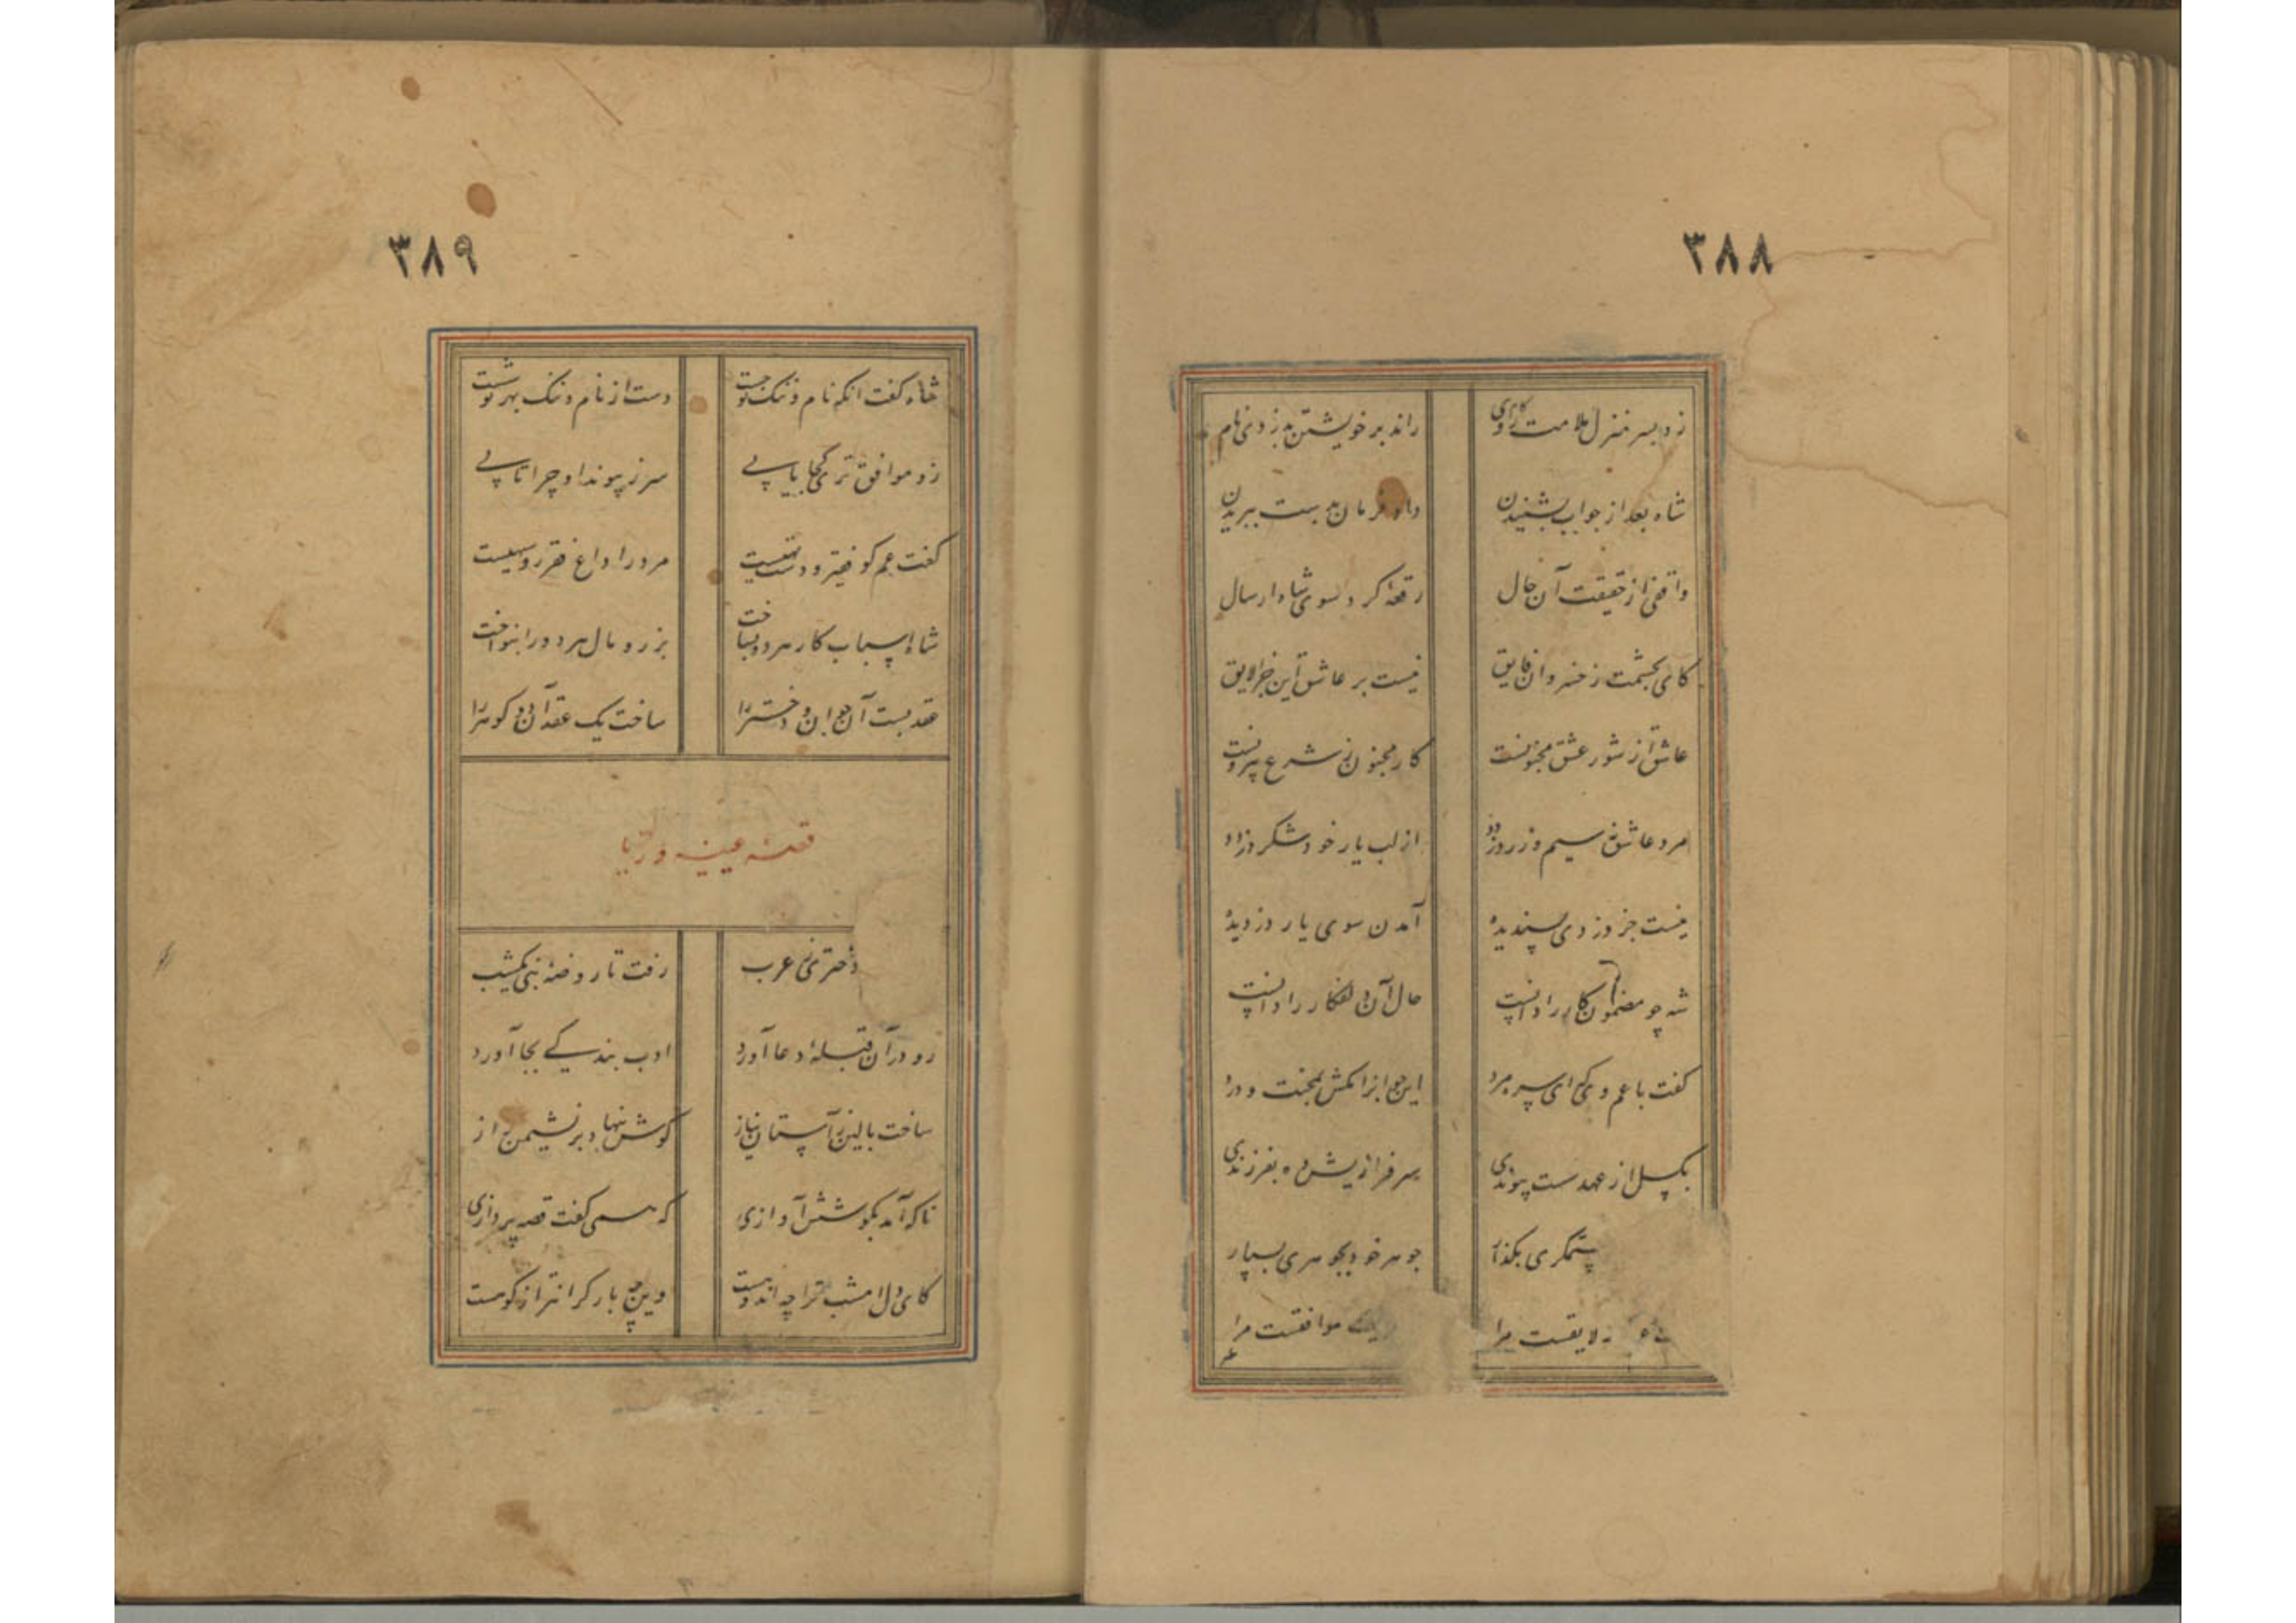 ۳۸۸
زد بسر منزل ملامت گام راند بر خویشتن بدزدی نام
شاه بعد از جواب بشنیدن داد فرمان بدست ببریدن
واقفی از حقیقت آن حال رقعهٔ کرد سوی شاه ارسال
کای بحشمت ز خسروان فایق نیست بر عاشق این جزا لایق
عاشق از شور عشق مجنونست کار مجنون ز شرع بیرونست
مرد عاشق نه سیم و زر دزدد از لب یار خود شکر دزدد
نیست جز دزدی پسندیده آمدن سوی یار دزدیده
شه چو مضمون کار را دانست حال آن دلفکار را دانست
گفت با عم وی که ای سره مرد این جوانرا مکش بمحنت و درد
بگسل از عهد سست پیوندی سرفرازیش ده بفرزندی
ستمگری بگذار جوهر خود بجوهری بسپار
لایقست مرا موافقست مرا
۳۸۹
شاه گفت انکه نام و ننگ تو جست دست از نام و ننگ بهر تو شست
زو موافق تر کجا یابی سر ز پیوند او چرا تابی
گفت عم کو فقیر و دست تهیست مرد را داغ فقر رو سیهیست
شاه اسباب کار هر دو بساخت بزر و مال هر دو را بنواخت
عقد بست آن جوان و دختر را ساخت یک عقد آن دو گوهر را
قصه عیینه و ریا
دختری عرب رفت تا روضهٔ نبی یکشب
رو در آن قبلهٔ دعا آورد ادب بندگی بجا آورد
ساخت بالین ز آستان نیاز گوش بنهاد بر نشیمن راز
ناگه آمد بگوشش آوازی که همی گفت قصه پردازی
کای دل امشب ترا چه اندوهست وین چه بار گرانتر از کوهست